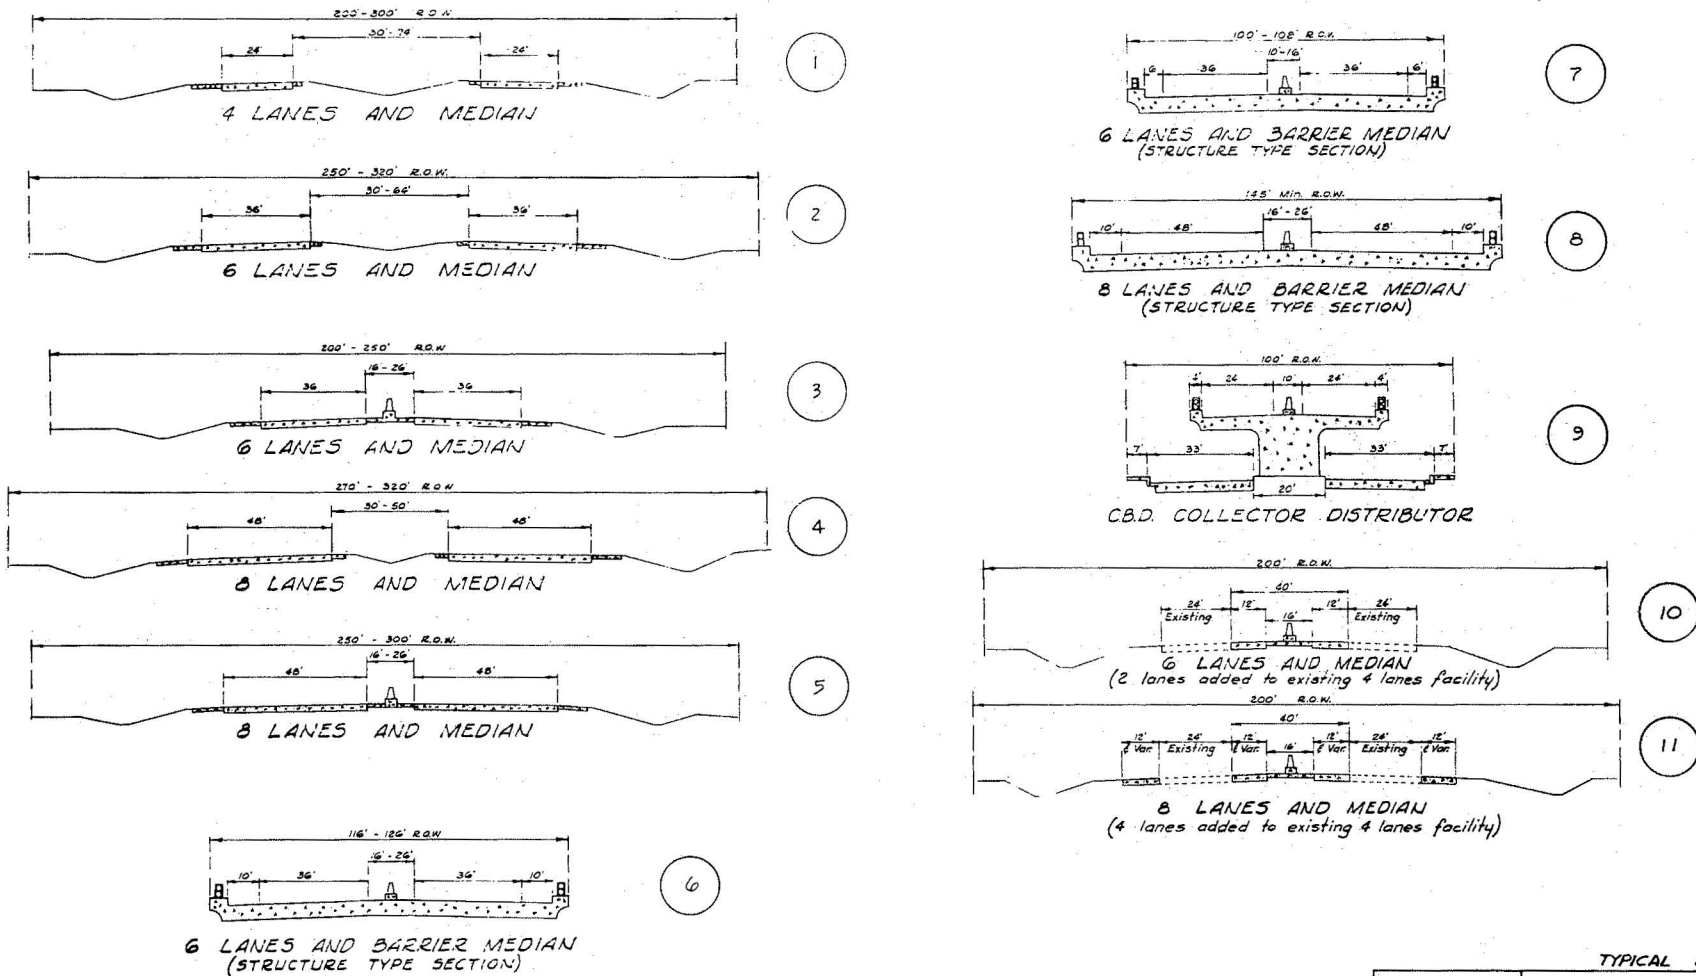 200'-300' R.O.W
30'-74'
24'
24'
1
4 LANES AND MEDIAN
250' - 320' R.O.W.
30'-64'
36'
36'
2
6 LANES AND MEDIAN
200' - 250' R.O.W
16'-26'
36
36
3
6 LANES AND MEDIAN
270' - 320' R.O.W
30'-50'
48'
48'
4
8 LANES AND MEDIAN
250' - 300' R.O.W.
16'-26'
48'
48'
5
8 LANES AND MEDIAN
116' - 126' R.O.W
16'-26'
10'
36'
36'
10'
6
6 LANES AND BARRIER MEDIAN
(STRUCTURE TYPE SECTION)
100' - 108' R.O.W.
10'-16'
6
36
36'
6'
7
6 LANES AND BARRIER MEDIAN
(STRUCTURE TYPE SECTION)
145' Min. R.O.W.
16'-26'
10'
48'
48'
10'
8
8 LANES AND BARRIER MEDIAN
(STRUCTURE TYPE SECTION)
100' R.O.W.
4'
24
10'
24'
4'
9
7'
33'
33'
7'
20'
C.B.D. COLLECTOR DISTRIBUTOR
200' R.O.W.
40'
24' 12' 16' 12' 24'
Existing Existing
10
6 LANES AND MEDIAN
(2 lanes added to existing 4 lanes facility)
200' R.O.W.
40'
12' 24' 12' 16' 12' 24' 12'
& Var. Existing & Var. & Var. Existing & Var.
11
8 LANES AND MEDIAN
(4 lanes added to existing 4 lanes facility)
TYPICAL